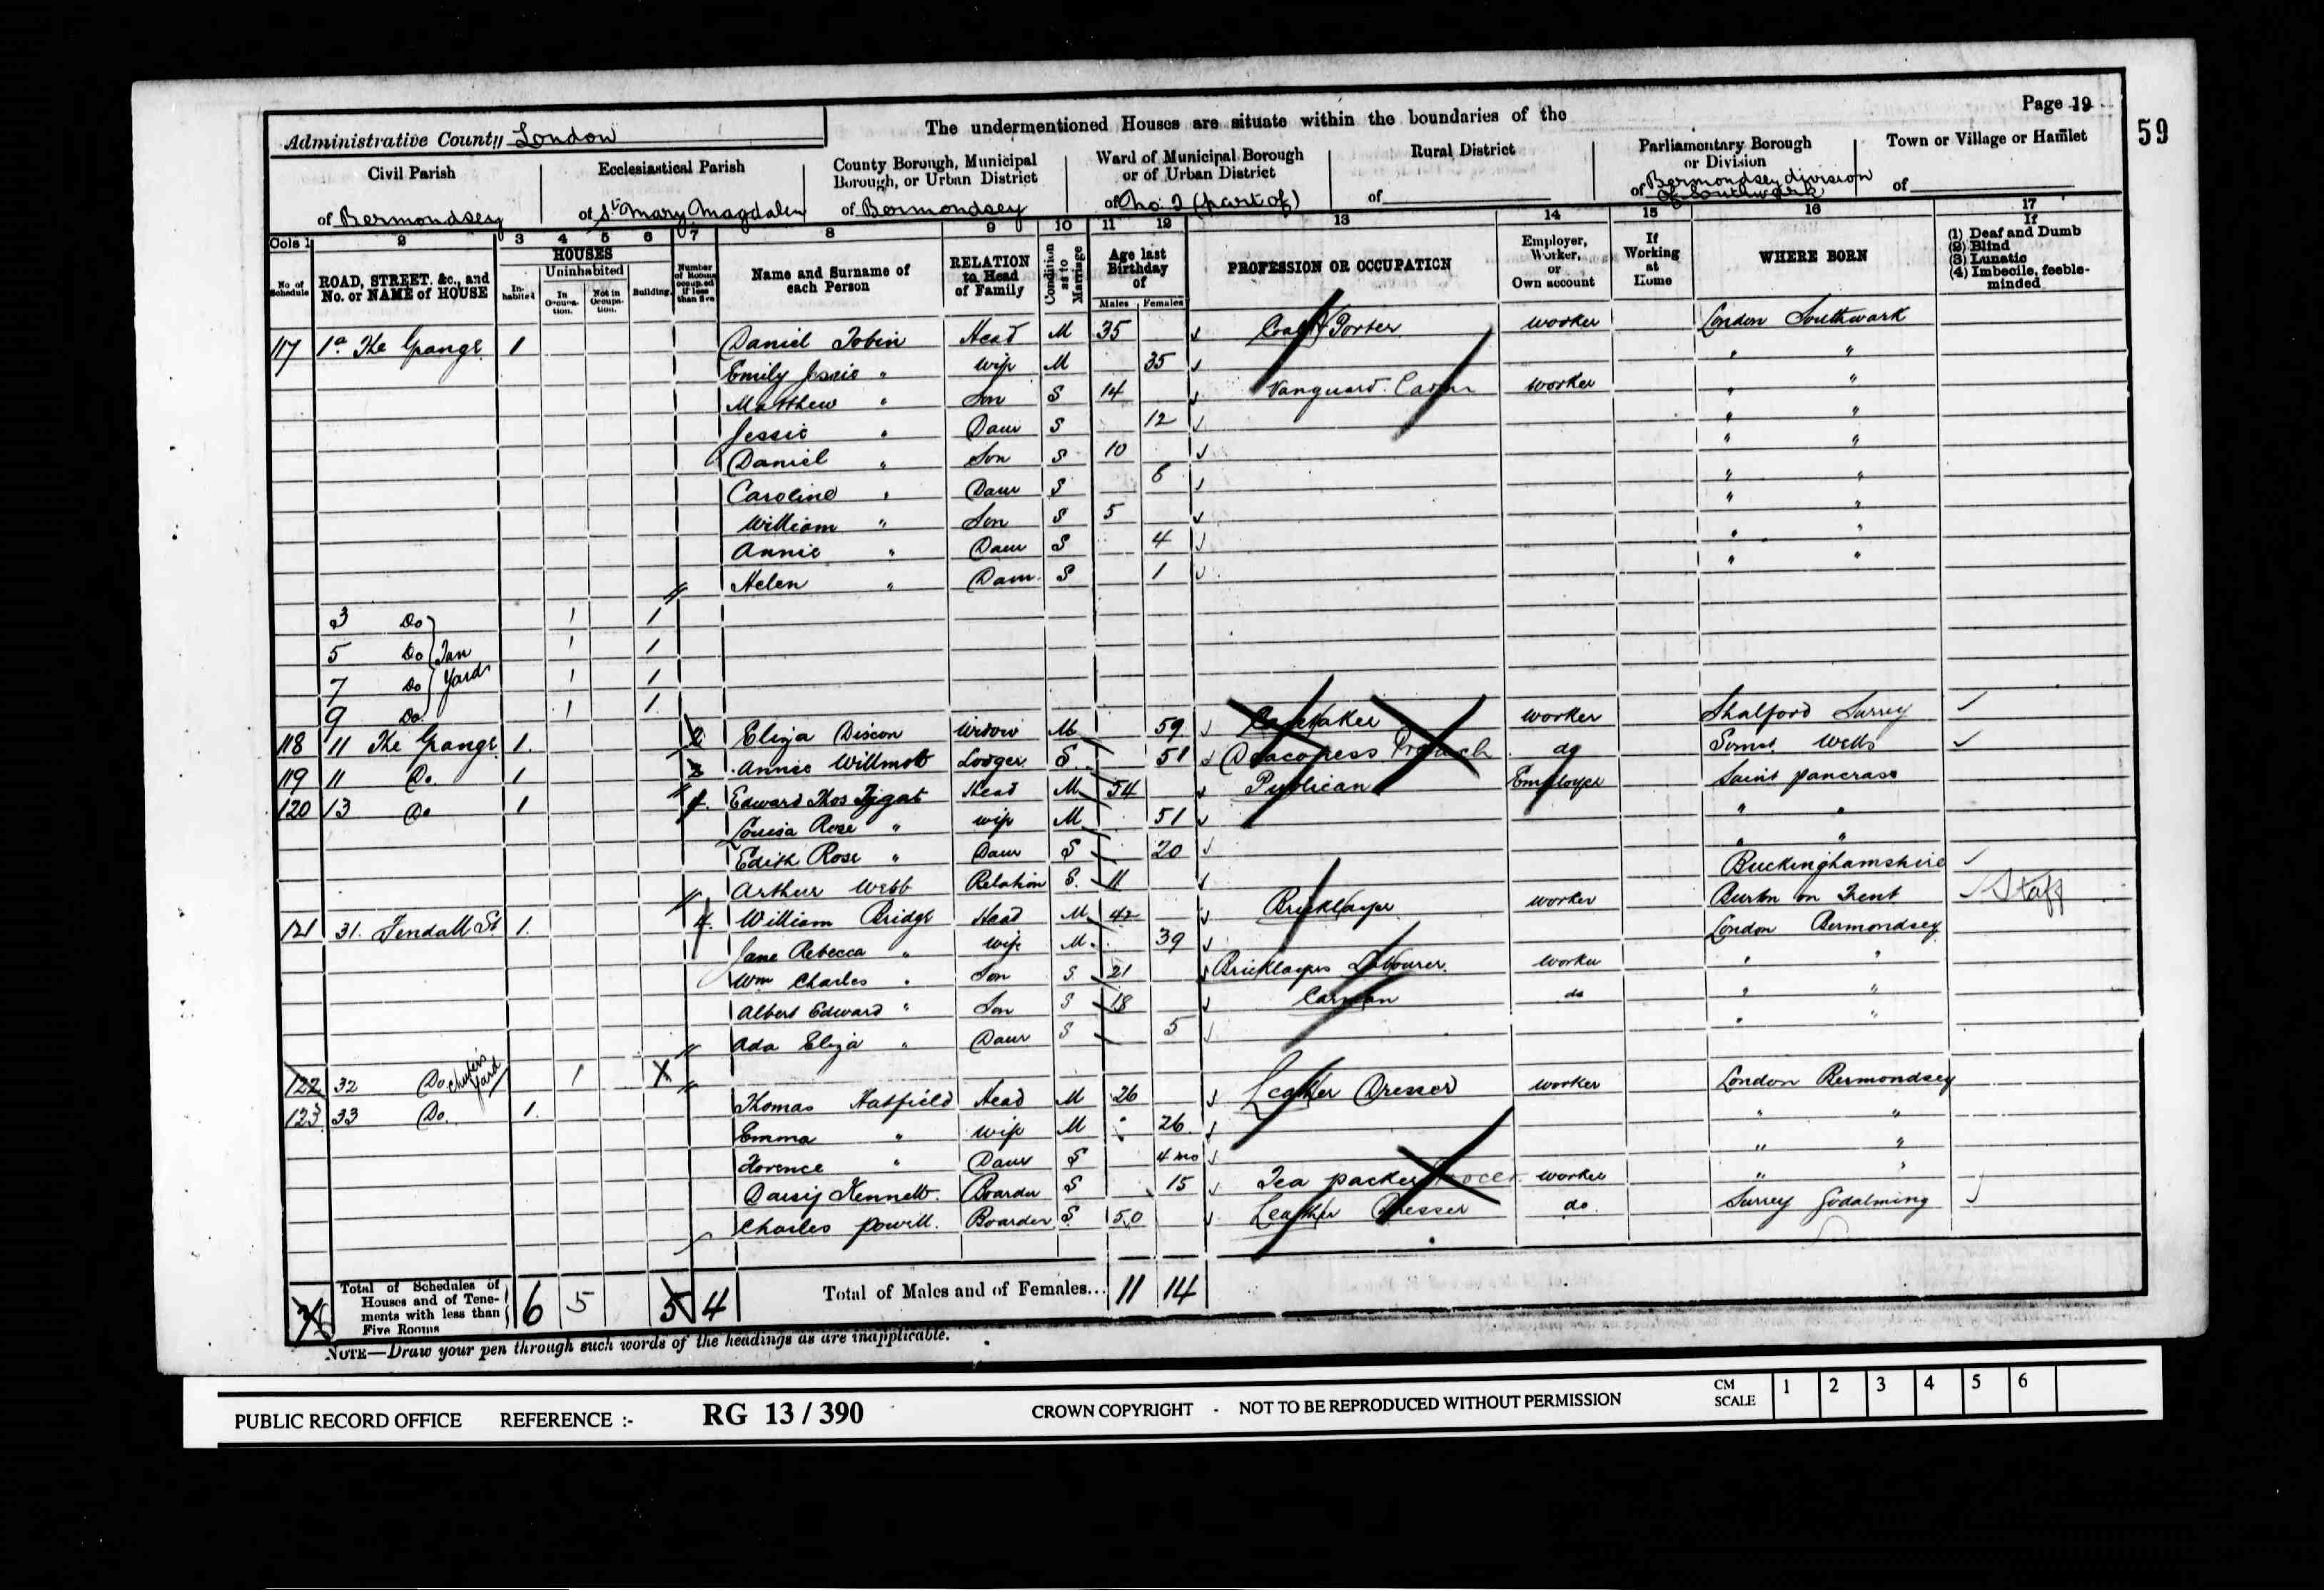 Page 19
59
Administrative County London
The undermentioned Houses are situate within the boundaries of the
Civil Parish
of Bermondsey
Ecclesiastical Parish
of St Mary Magdalen
County Borough, Municipal
Borough, or Urban District
of Bermondsey
Ward of Municipal Borough
or of Urban District
of No. 2 (part of)
Rural District
of
Parliamentary Borough
or Division
of Bermondsey division
of Southwark
Town or Village or Hamlet
of
Cols 1 2 3 4 5 6 7 8 9 10 11 12 13 14 15 16 17
No of Schedule
ROAD, STREET, &c., and
No. or NAME of HOUSE
HOUSES
Inhabited
Uninhabited
In Occupation.
Not in Occupation.
Building.
Number of Rooms occupied if less than five
Name and Surname of
each Person
RELATION
to Head
of Family
Condition as to Marriage
Age last
Birthday
of
Males Females
PROFESSION OR OCCUPATION
Employer,
Worker,
or
Own account
If
Working
at
Home
WHERE BORN
If
(1) Deaf and Dumb
(2) Blind
(3) Lunatic
(4) Imbecile, feeble-
minded
117 1a The Grange 1 Daniel Tobin Head M 35 Coal Porter worker London Southwark
Emily Jessie " wife M 35 " "
Matthew " Son S 14 Vanguard worker " "
Jessie " Daur S 12 " "
Daniel " Son S 10 " "
Caroline " Daur S 6 " "
William " Son S 5 " "
Annie " Daur S 4 " "
Helen " Daur S 1 " "
3 Do 1 1
5 Do Tan 1 1
7 Do Yard 1 1
9 Do 1 1
118 11 The Grange 1. 2 Eliza Discon Widow M 59 Caretaker worker Shalford Surrey
119 11 Do 1 2 Annie Willmot Lodger S 51 Deaconess do Somst Wells
120 13 Do 1 4 Edward Thos Head M 54 Publican Employer Saint pancras
Louisa Rose " wife M 51 " "
Edith Rose " Daur S 20 " "
Arthur Webb Relation S. 11 Buckinghamshire
121 31. Tendall St 1. 4 William Bridge Head M 42 Bricklayer worker Burton on Trent Staff
Jane Rebecca " wife M. 39 London Bermondsey
Wm Charles " Son S 21 Bricklayers Labourer. worker " "
Albert Edward " Son S 18 Carman do " "
Ada Eliza " Daur S 5 " "
122 32 Do Yard 1 X
123 33 Do. 1. Thomas Hatfield Head M 26 Leather Dresser worker London Bermondsey
Emma " wife M 26 " "
Florence " Daur S 4 mo " "
Daisy Kennett. Boarder S 15 Tea packer worker " "
Charles Powell. Boarder S 50 Leather Dresser do. Surrey Godalming
Total of Schedules of
Houses and of Tene-
ments with less than
Five Rooms
6 5 5 4
Total of Males and of Females... 11 14
NOTE—Draw your pen through such words of the headings as are inapplicable.
PUBLIC RECORD OFFICE REFERENCE :- RG 13 / 390 CROWN COPYRIGHT - NOT TO BE REPRODUCED WITHOUT PERMISSION
CM
SCALE
1 2 3 4 5 6